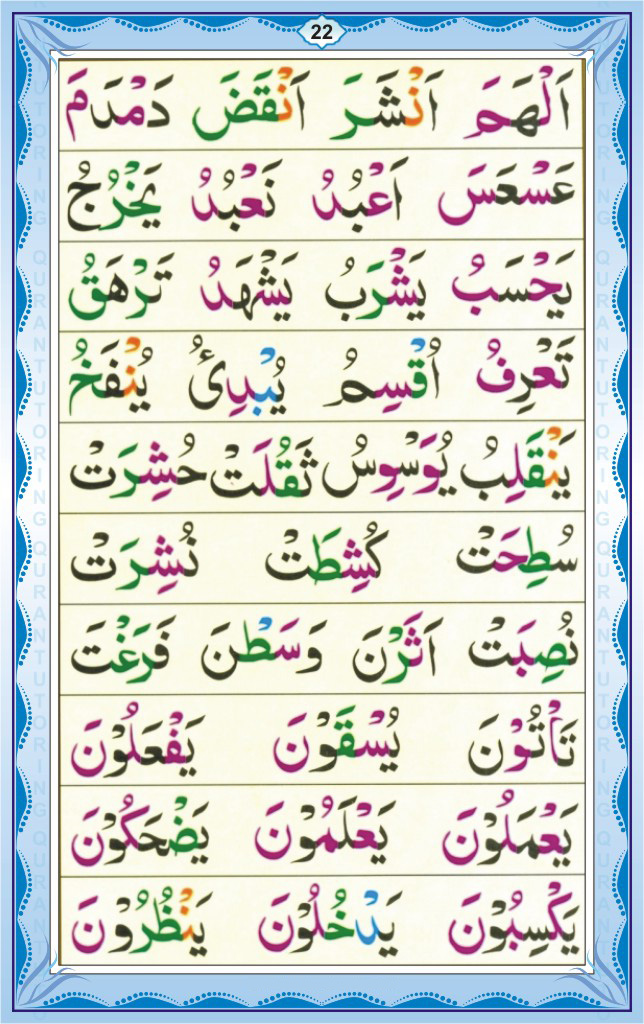 22
اَلْهَمَ اَنْشَرَ اَنْقَضَ دَمْدَمَ
عَسْعَسَ اَعْبُدُ نَعْبُدُ يَخْرُجُ
يَحْسَبُ يَشْرَبُ يَشْهَدُ تَرْهَقُ
تَعْرِفُ اُقْسِمُ يُبْدِئُ يُنْفَخُ
يَنْقَلِبُ يُوَسْوِسُ ثَقُلَتْ حُشِرَتْ
سُطِحَتْ كُشِطَتْ نُشِرَتْ
نُصِبَتْ اَثَرْنَ وَسَطْنَ فَرَغْتَ
تَأْتُوْنَ يُسْقَوْنَ يَفْعَلُوْنَ
يَعْمَلُوْنَ يَعْلَمُوْنَ يَضْحَكُوْنَ
يَكْسِبُوْنَ يَدْخُلُوْنَ يَنْظُرُوْنَ
QURAN TUTORING QURAN TUTORING QURAN TUTORING